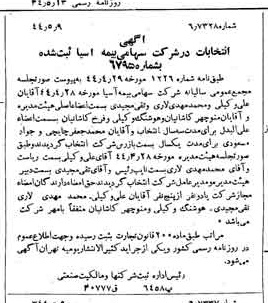 روزنامه رسمی شماره ۴۴٫۵٫۱۳
شماره ۶٫۷۳۲۸ ۴۴٫۵٫۹
آگهی
انتخابات در شرکت سهامی بیمه آسیا ثبت شده
بشماره ۶۷۹۵
طبق نامه شماره ۱۲۲۶ مورخه ۴۴٫۴٫۲۹ به پیوست صورتجلسه
مجمع عمومی سالیانه شرکت سهامی بیمه آسیا مورخه ۴۴٫۳٫۲۸ آقایان
علی وکیلی و محمد مهدی لاری و تقی مجیدی بسمت اعضاء اصلی هیئت مدیره
و آقایان منوچهر کاشانیان و هوشنگ وکیلی و فرخ کاشانیان بسمت اعضاء
علی البدل برای مدت سه سال انتخاب و آقایان محمد جعفر چایچی و جواد
مسعودی برای مدت یکسال بسمت بازرس شرکت انتخاب گردیدند و طبق
صورتجلسه هیئت مدیره مورخه ۴۴٫۳٫۲۸ آقای علی وکیلی بسمت ریاست
و آقای مهدی لاری بسمت نایب رئیس و آقای تقی مجیدی بسمت دبیر
هیئت مدیره و مدیرعامل شرکت انتخاب گردیدند حق امضاء دارندگان امضاء
مجاز شرکت با دو نفر از پنج نفر آقایان علی وکیلی، محمد مهدی لاری
تقی مجیدی، هوشنگ وکیلی و منوچهر کاشانیان متفقاً با مهر شرکت
می باشد.
مراتب طبق ماده ۲۰۰ قانون تجارت ثبت رسیده وجهت اطلاع عموم
در روزنامه رسمی کشور و یکی از جراید کثیرالانتشار یومیه تهران آگهی
می شود.
رئیس اداره ثبت شرکتها و مالکیت صنعتی
ب ۶۴۵۸ ق ۴۰۷۷۷